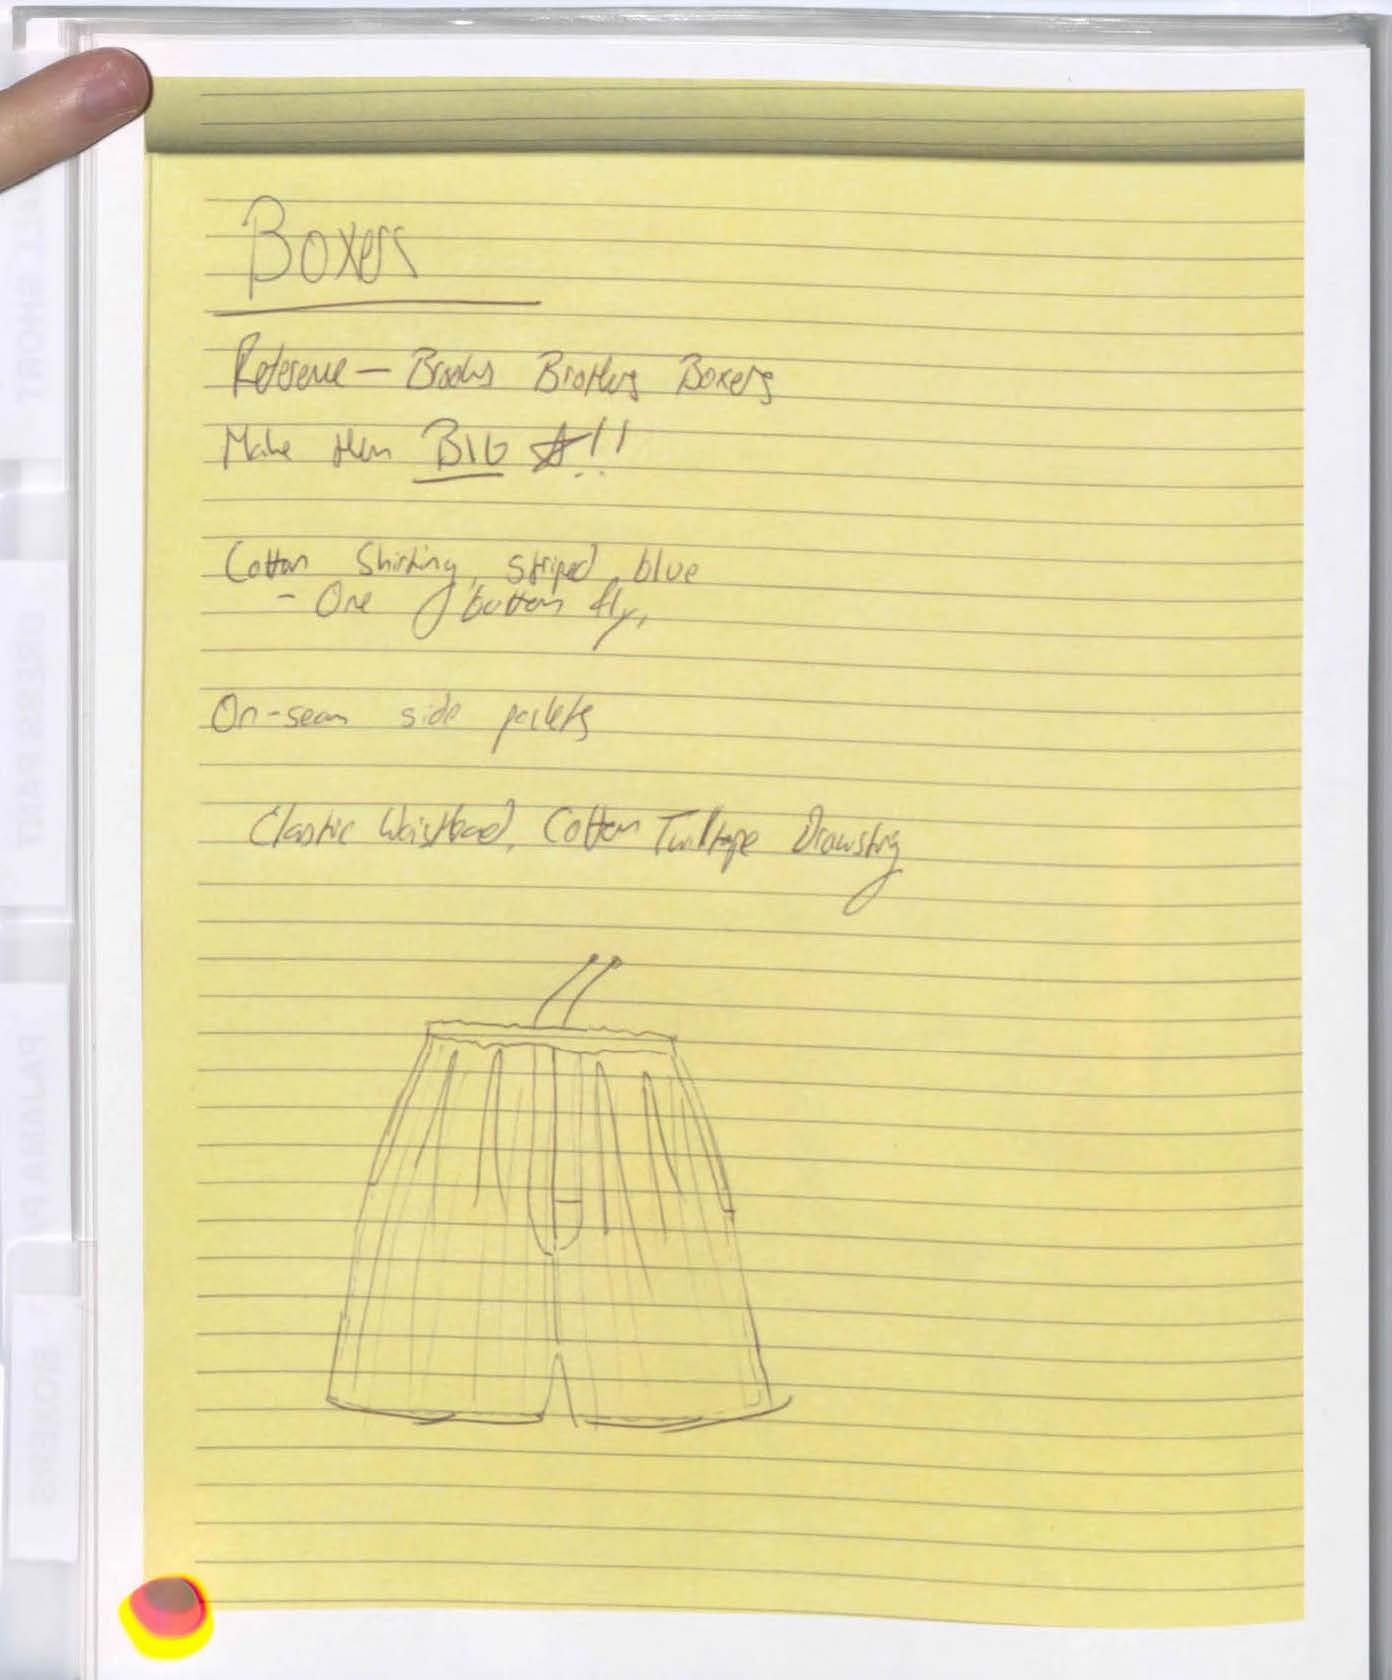 Boxers
Reference — Brooks Brothers Boxers
Make them BIG ☆!!
Cotton Shirting, striped, blue
- One button fly,
On-seam side pockets
Elastic Waistband, Cotton Twilltape Drawstring
DRESS PANT
PAJAMA P
BOXERS